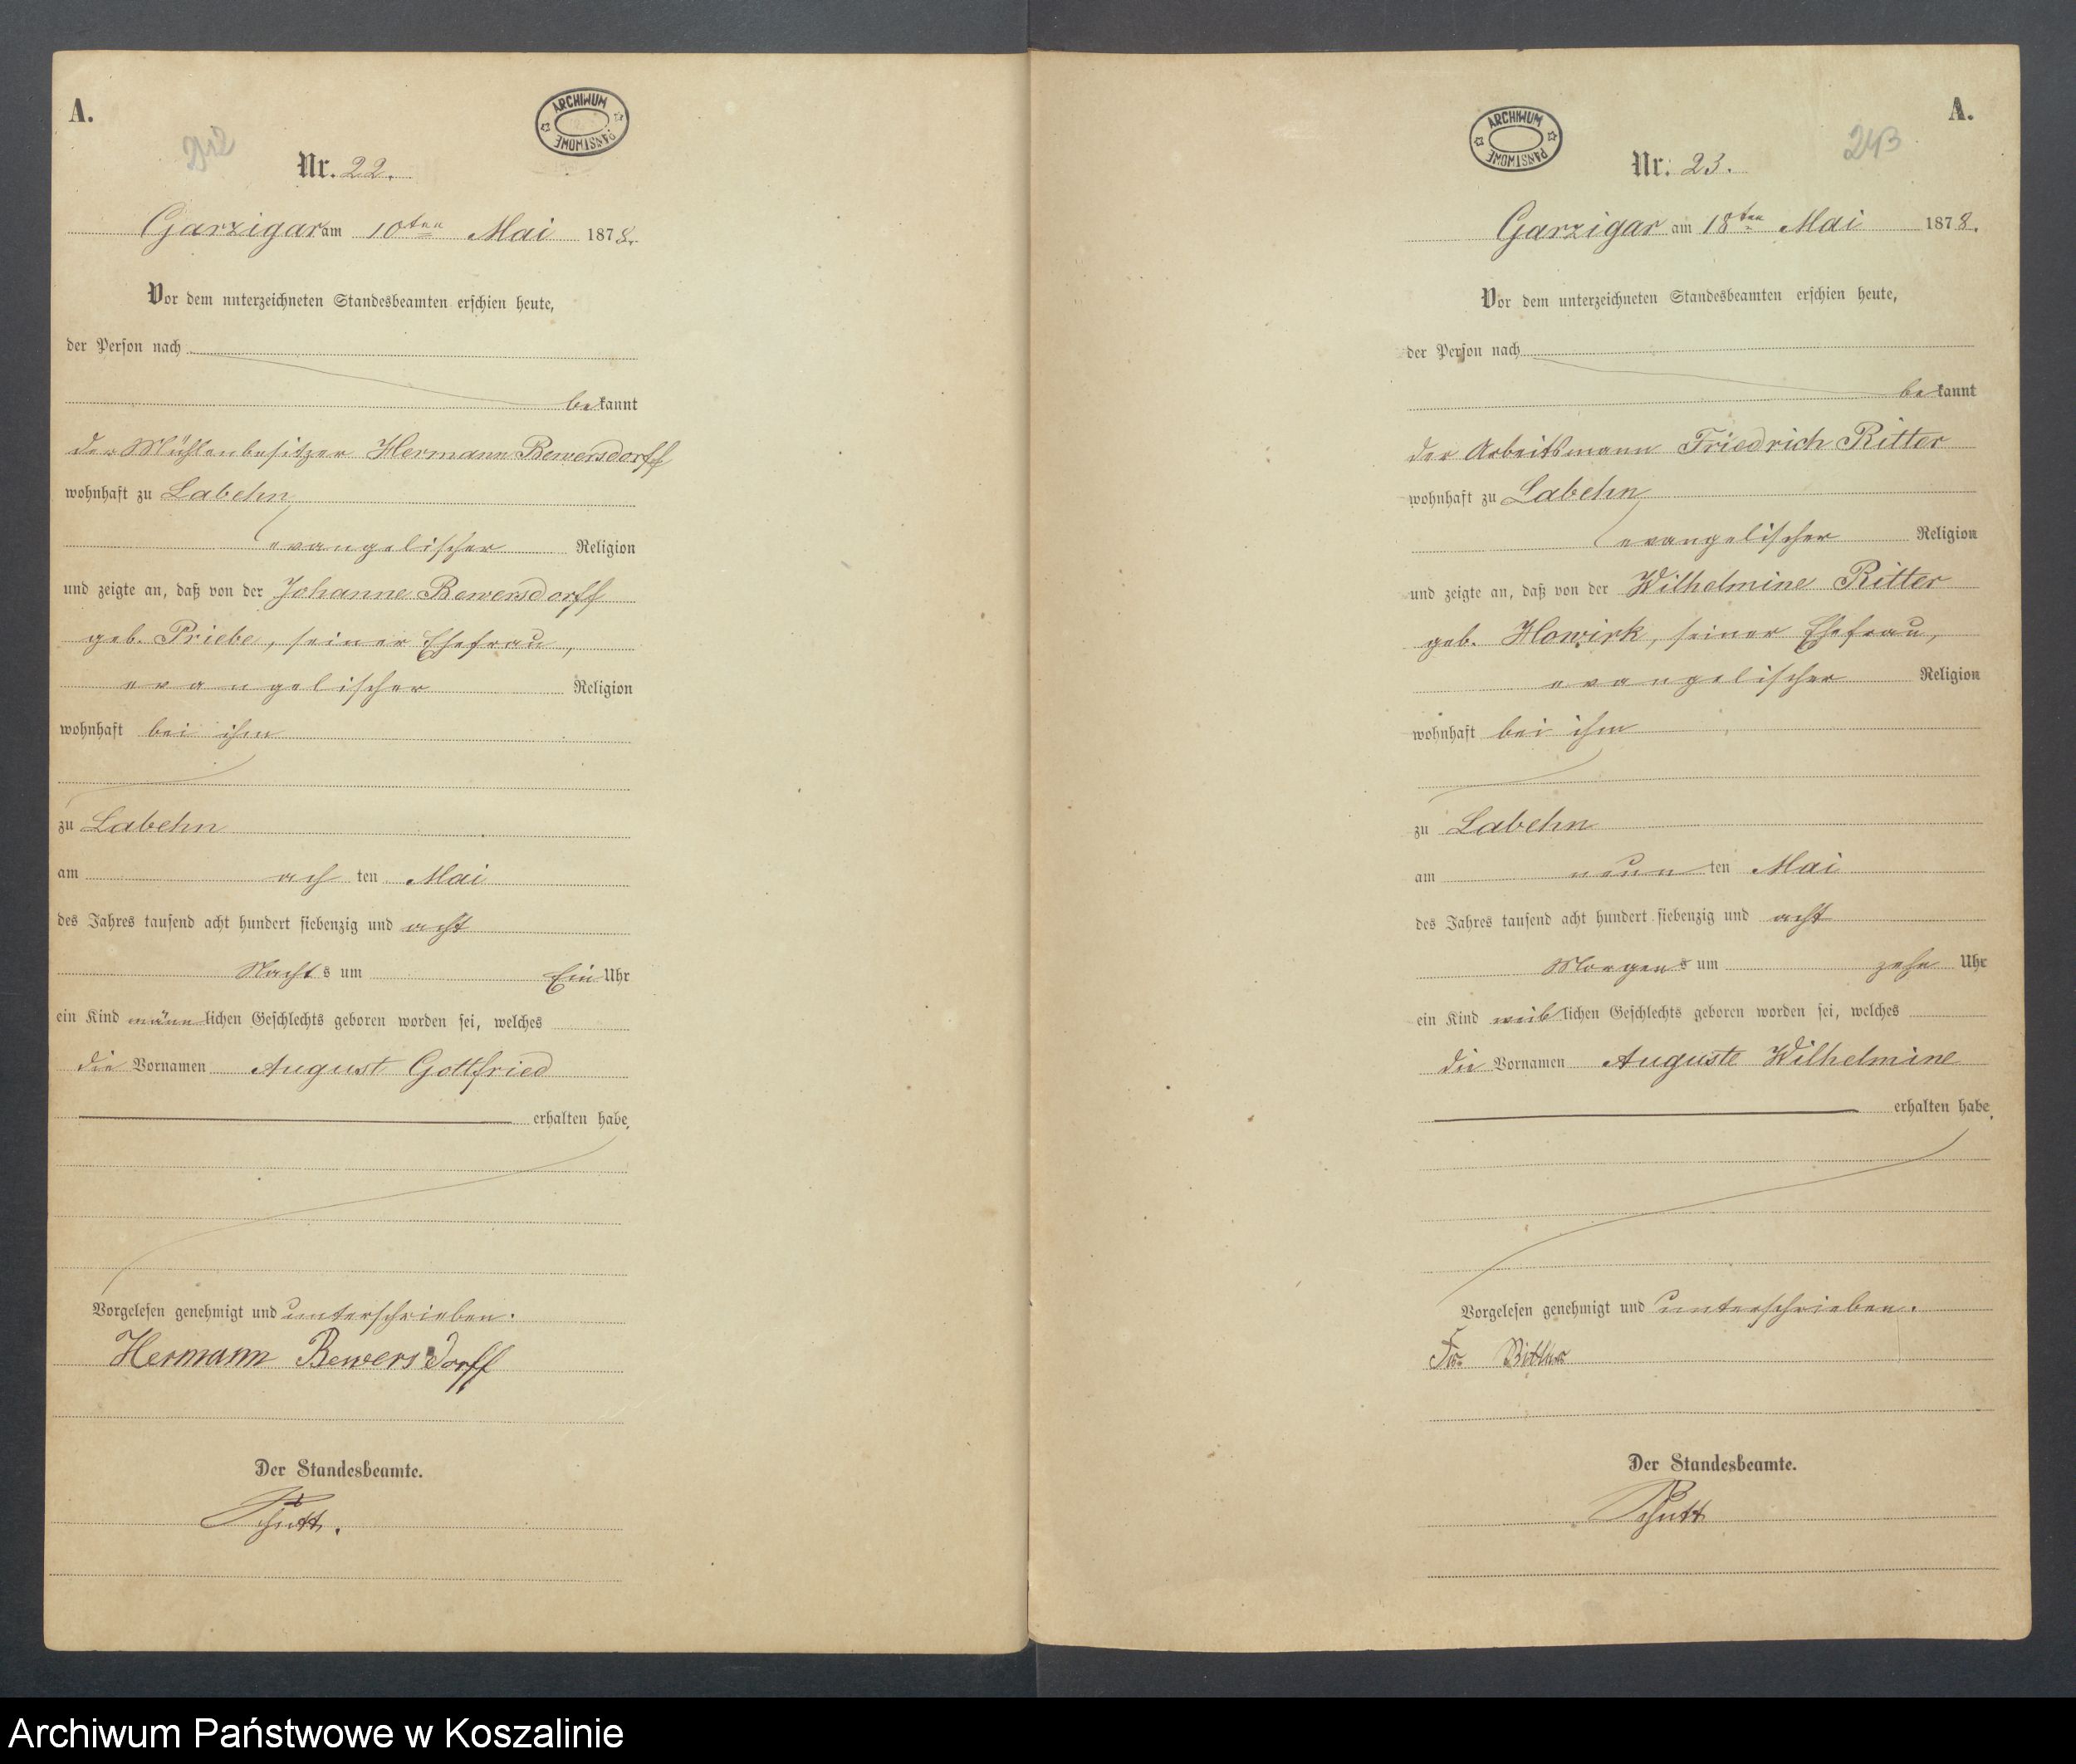 A.
242
ARCHIWUM PAŃSTWOWE
Nr. 22.
Garzigar am 10ten Mai 1878.
Vor dem unterzeichneten Standesbeamten erschien heute,
der Person nach
bekannt
der Mühlenbesitzer Hermann Bewersdorff
wohnhaft zu Labehn
evangelischer Religion
und zeigte an, daß von der Johanne Bewersdorff
geb. Priebe, seiner Ehefrau,
evangelischer Religion
wohnhaft bei ihm
zu Labehn
am achten Mai
des Jahres tausend acht hundert siebenzig und acht
Nachts um Ein Uhr
ein Kind männlichen Geschlechts geboren worden sei, welches
die Vornamen August Gottfried
erhalten habe.
Vorgelesen genehmigt und unterschrieben.
Hermann Bewersdorff
Der Standesbeamte.
A.
243
ARCHIWUM PAŃSTWOWE
Nr. 23.
Garzigar am 18ten Mai 1878.
Vor dem unterzeichneten Standesbeamten erschien heute,
der Person nach
bekannt
der Arbeitsmann Friedrich Ritter
wohnhaft zu Labehn
evangelischer Religion
und zeigte an, daß von der Wilhelmine Ritter
geb. Howirk, seiner Ehefrau,
evangelischer Religion
wohnhaft bei ihm
zu Labehn
am neunten Mai
des Jahres tausend acht hundert siebenzig und acht
Morgens um zehn Uhr
ein Kind weiblichen Geschlechts geboren worden sei, welches
die Vornamen Auguste Wilhelmine
erhalten habe.
Vorgelesen genehmigt und unterschrieben.
Fr. Ritter
Der Standesbeamte.
Archiwum Państwowe w Koszalinie